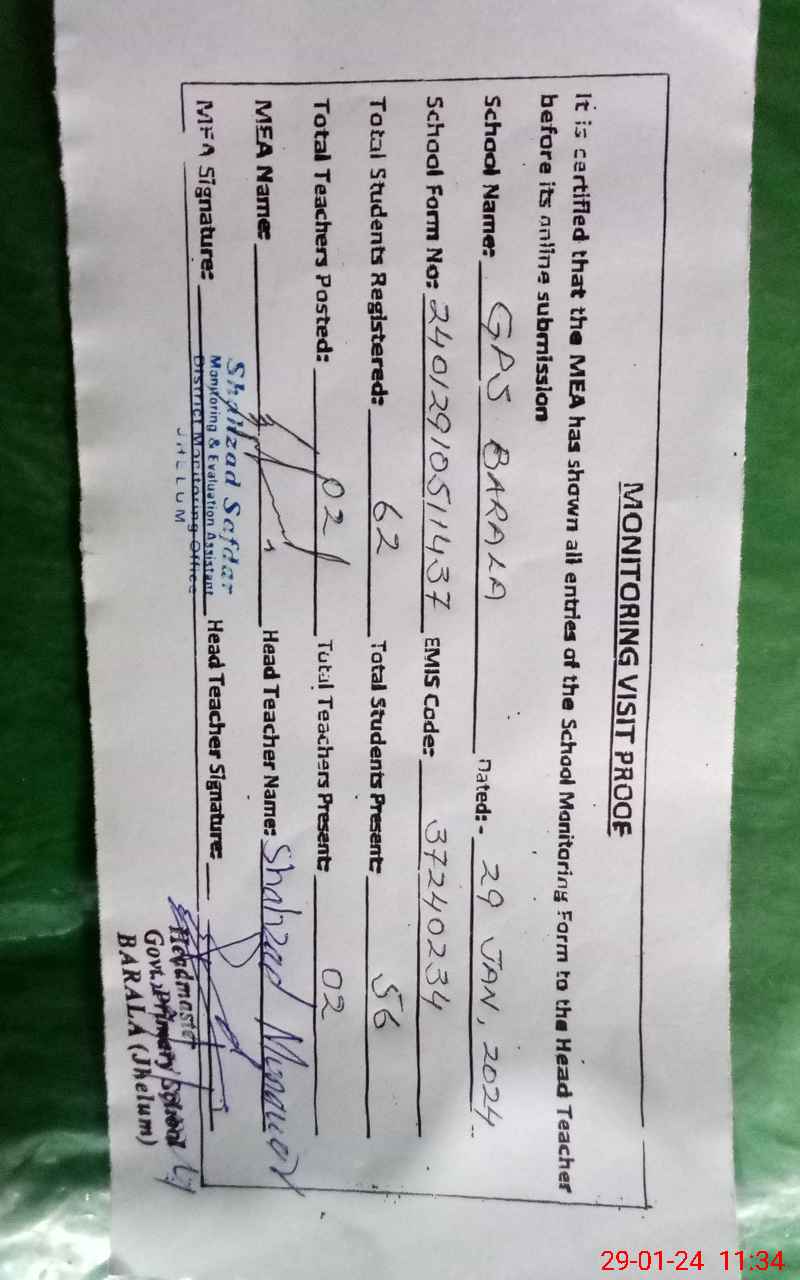 MONITORING VISIT PROOF
It is certified that the MEA has shown all entries of the School Monitoring Form to the Head Teacher
before its online submission
School Name: GPS BARALA Dated:- 29 JAN, 2024
School Form No: 24012910511437 EMIS Code: 37240234
Total Students Registered: 62 Total Students Present: 56
Total Teachers Posted: 02 Total Teachers Present: 02
MEA Name: Head Teacher Name: Shahzad Munawar
MEA Signature: Head Teacher Signature:
Shahzad Safdar
Monitoring & Evaluation Assistant
District Monitoring Office
JHELUM
Headmaster
Govt. Primary School
BARALA (Jhelum)
29-01-24 11:34